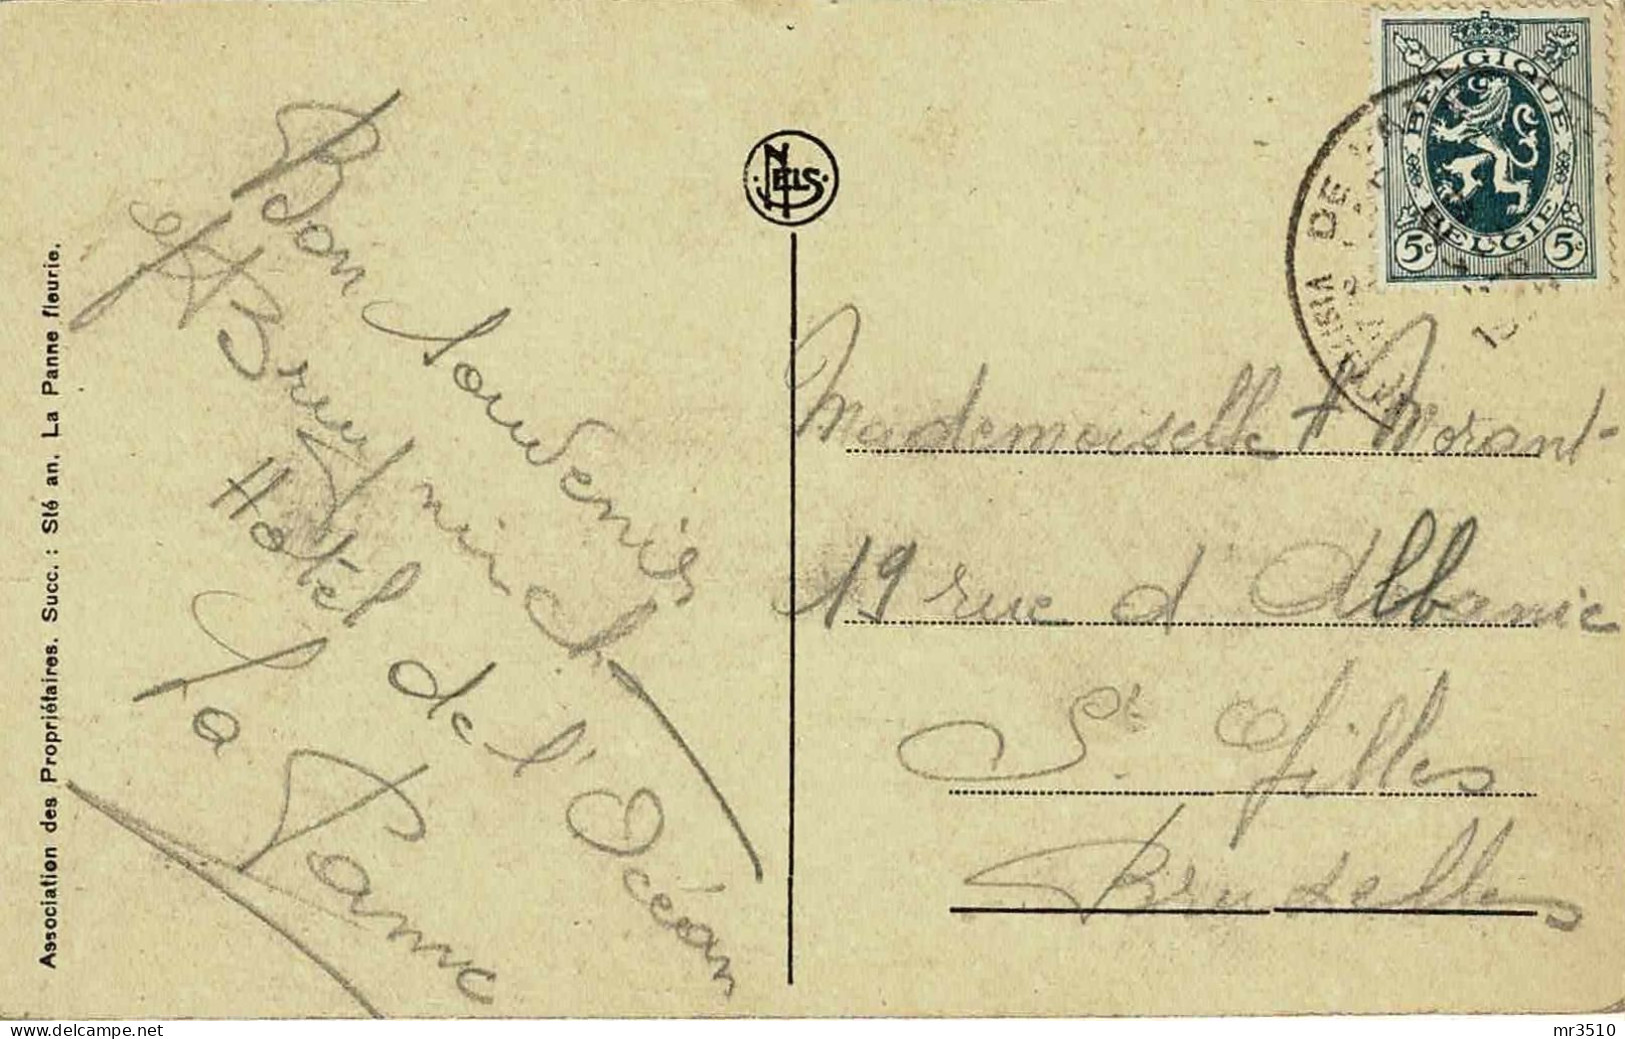 Association des Propriétaires. Succ. : Sté an. La Panne fleurie.
Bon souvenir
Hôtel de l'Océan
La Panne
NELS
BELGIQUE
BELGIE
5c 5c
DE
Mademoiselle F Morant
19 rue d'Albanie
St. Gilles
Bruxelles
www.delcampe.net
mr3510